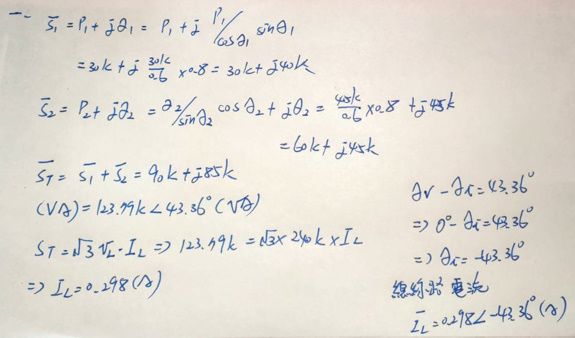 一、 S̄₁ = P₁ + jQ₁ = P₁ + j P₁/cosθ₁ sinθ₁
= 30k + j 30k/0.6 × 0.8 = 30k + j40k
S̄₂ = P₂ + jQ₂ = Q₂/sinθ₂ cosθ₂ + jQ₂ = 45k/0.6 × 0.8 + j45k
= 60k + j45k
S̄T = S̄₁ + S̄₂ = 90k + j85k
(VA) = 123.79k∠43.36° (VA)
ST = √3 VL · IL => 123.79k = √3 × 240k × IL
=> IL = 0.298 (A)
θv - θi = 43.36°
=> 0° - θi = 43.36°
=> θi = -43.36°
總線路電流
ĪL = 0.298∠-43.36° (A)